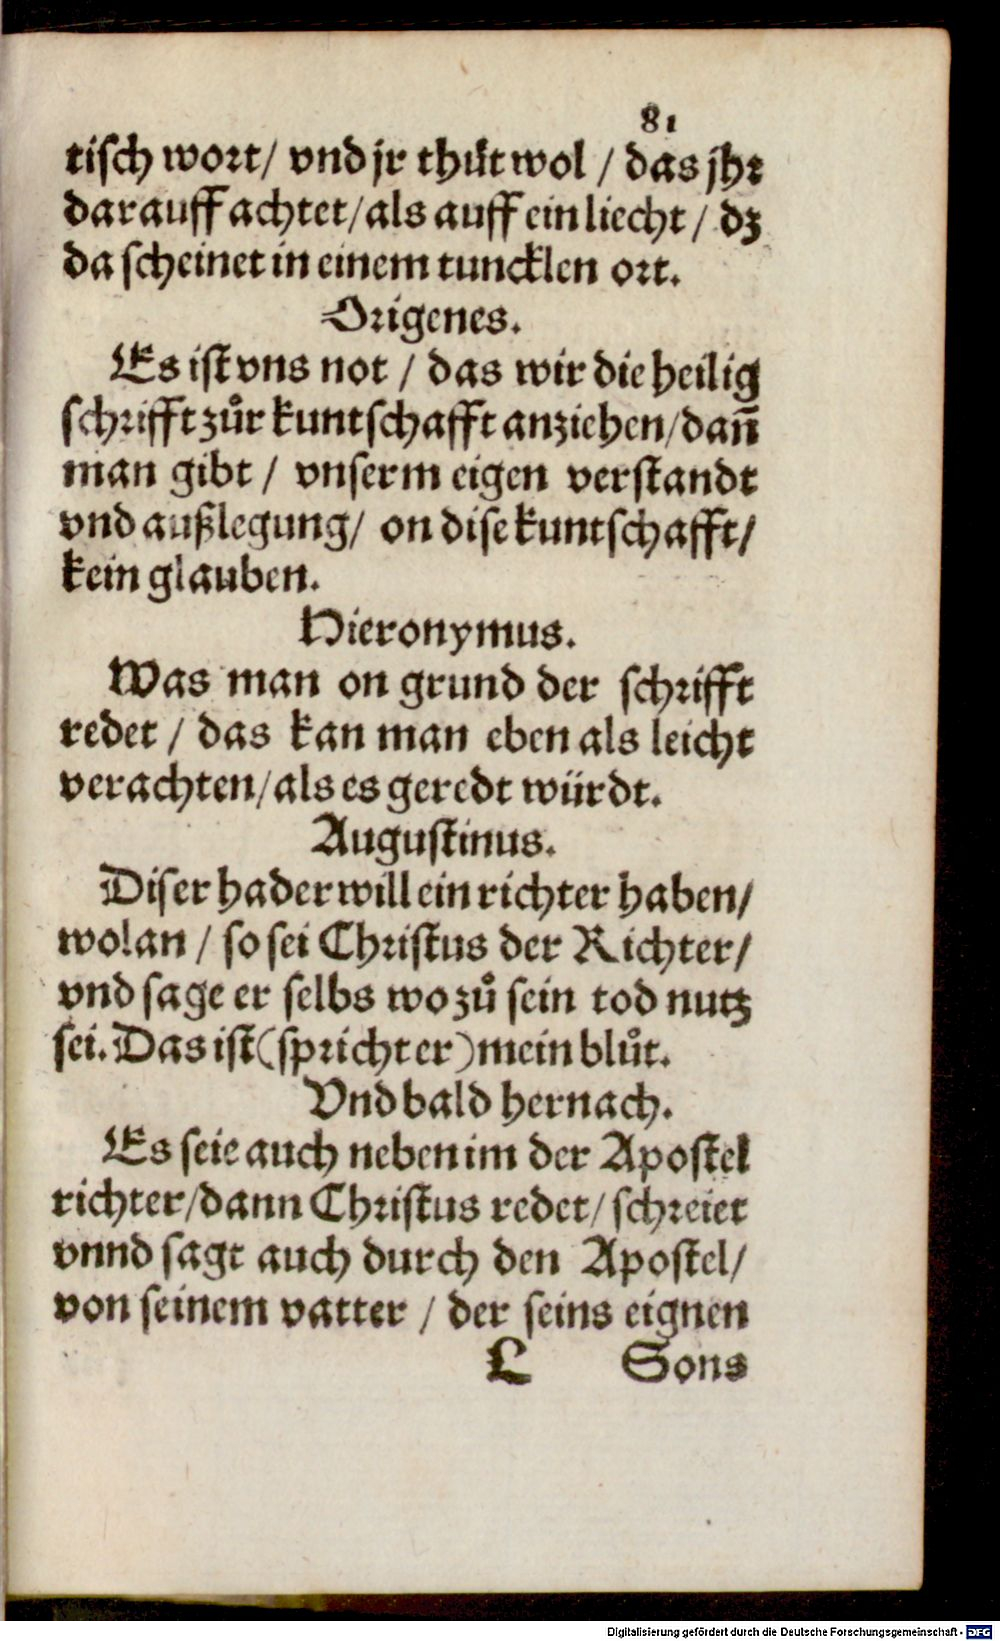 81
tisch wort/ vnd jr thůt wol / das jhr
darauff achtet/als auff ein liecht / dz
da scheinet in einem tuncklen ort.
Origenes.
Es ist vns not / das wir die heilig
schrifft zůr kuntschafft anziehen/dañ
man gibt / vnserm eigen verstandt
vnd außlegung/ on dise kuntschafft/
kein glauben.
Hieronymus.
Was man on grund der schrifft
redet / das kan man eben als leicht
verachten/als es geredt würdt.
Augustinus.
Diser hader will ein richter haben/
wolan / so sei Christus der Richter/
vnd sage er selbs wo zů sein tod nutz
sei. Das ist (spricht er) mein blůt.
Vnd bald hernach.
Es seie auch neben im der Apostel
richter/dann Christus redet/ schreiet
vnnd sagt auch durch den Apostel/
von seinem vatter / der seins eignen
L Sons
Digitalisierung gefördert durch die Deutsche Forschungsgemeinschaft - DFG